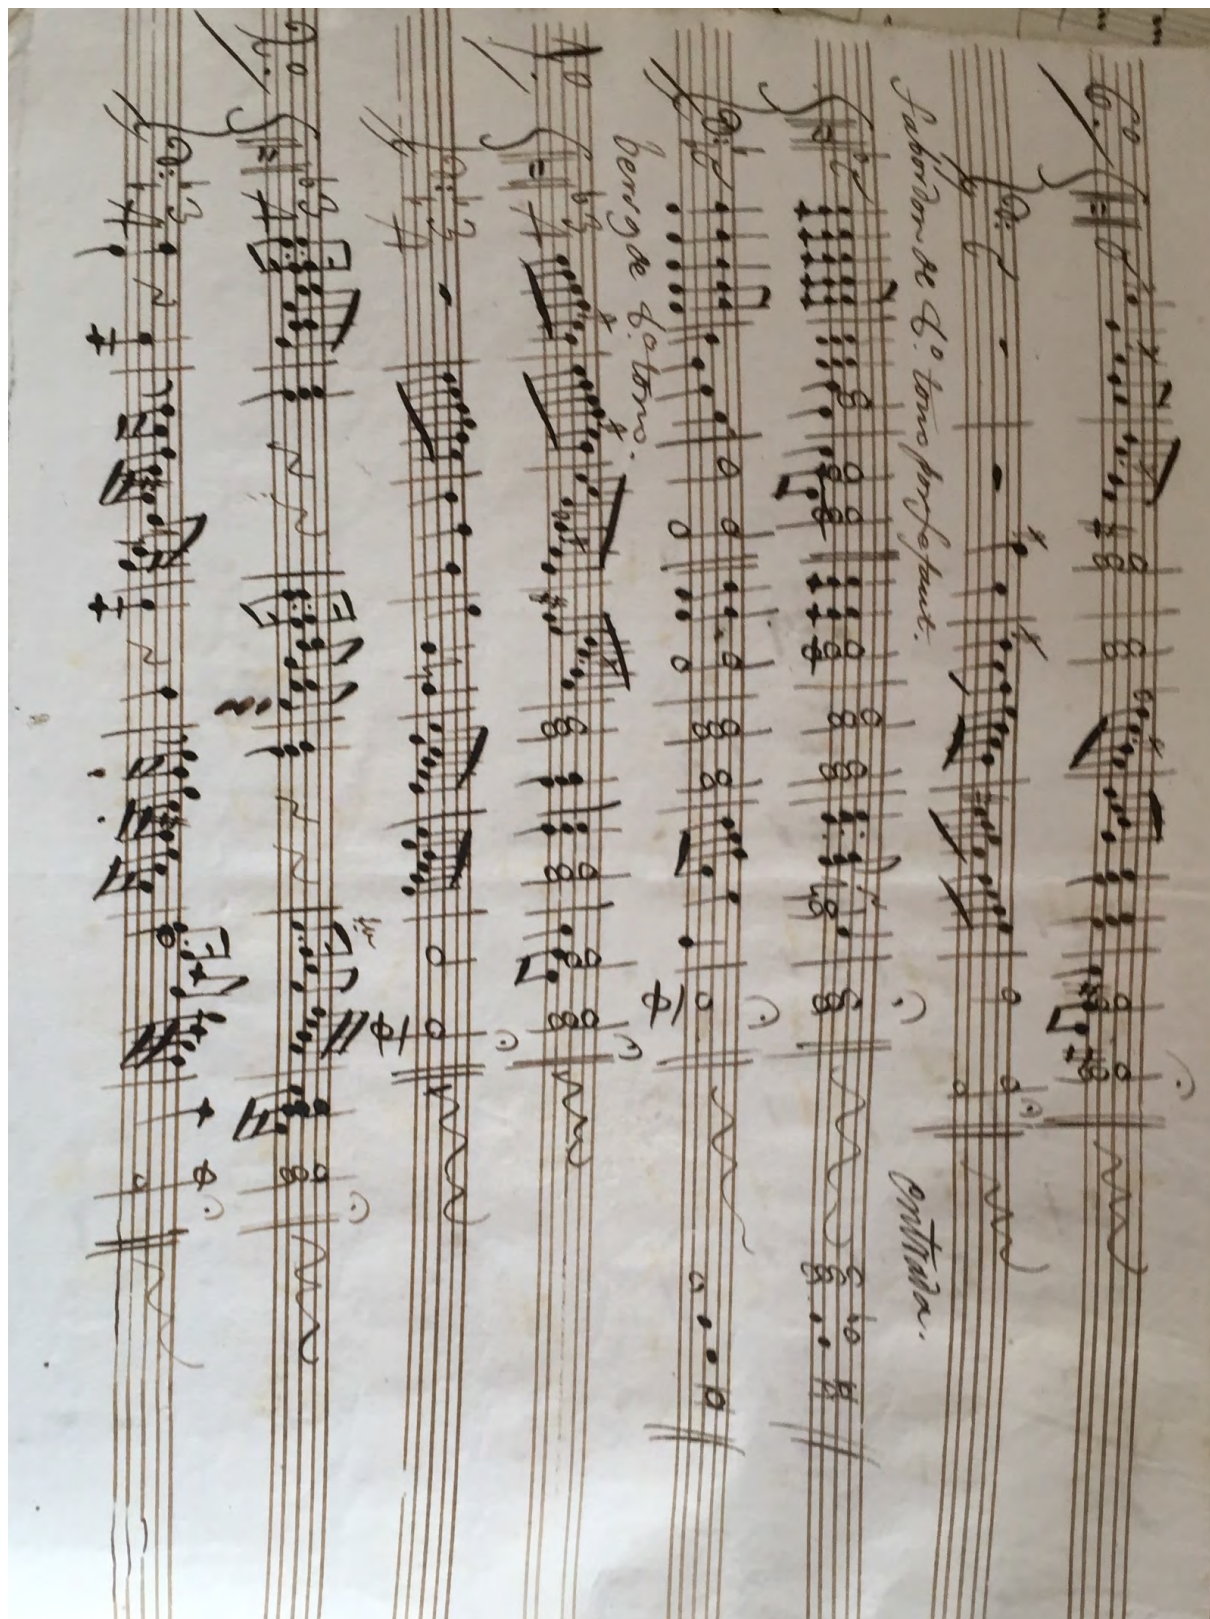 fabordon de 6.º tono por fefaut.
entrada.
Verso de 6.º tono.